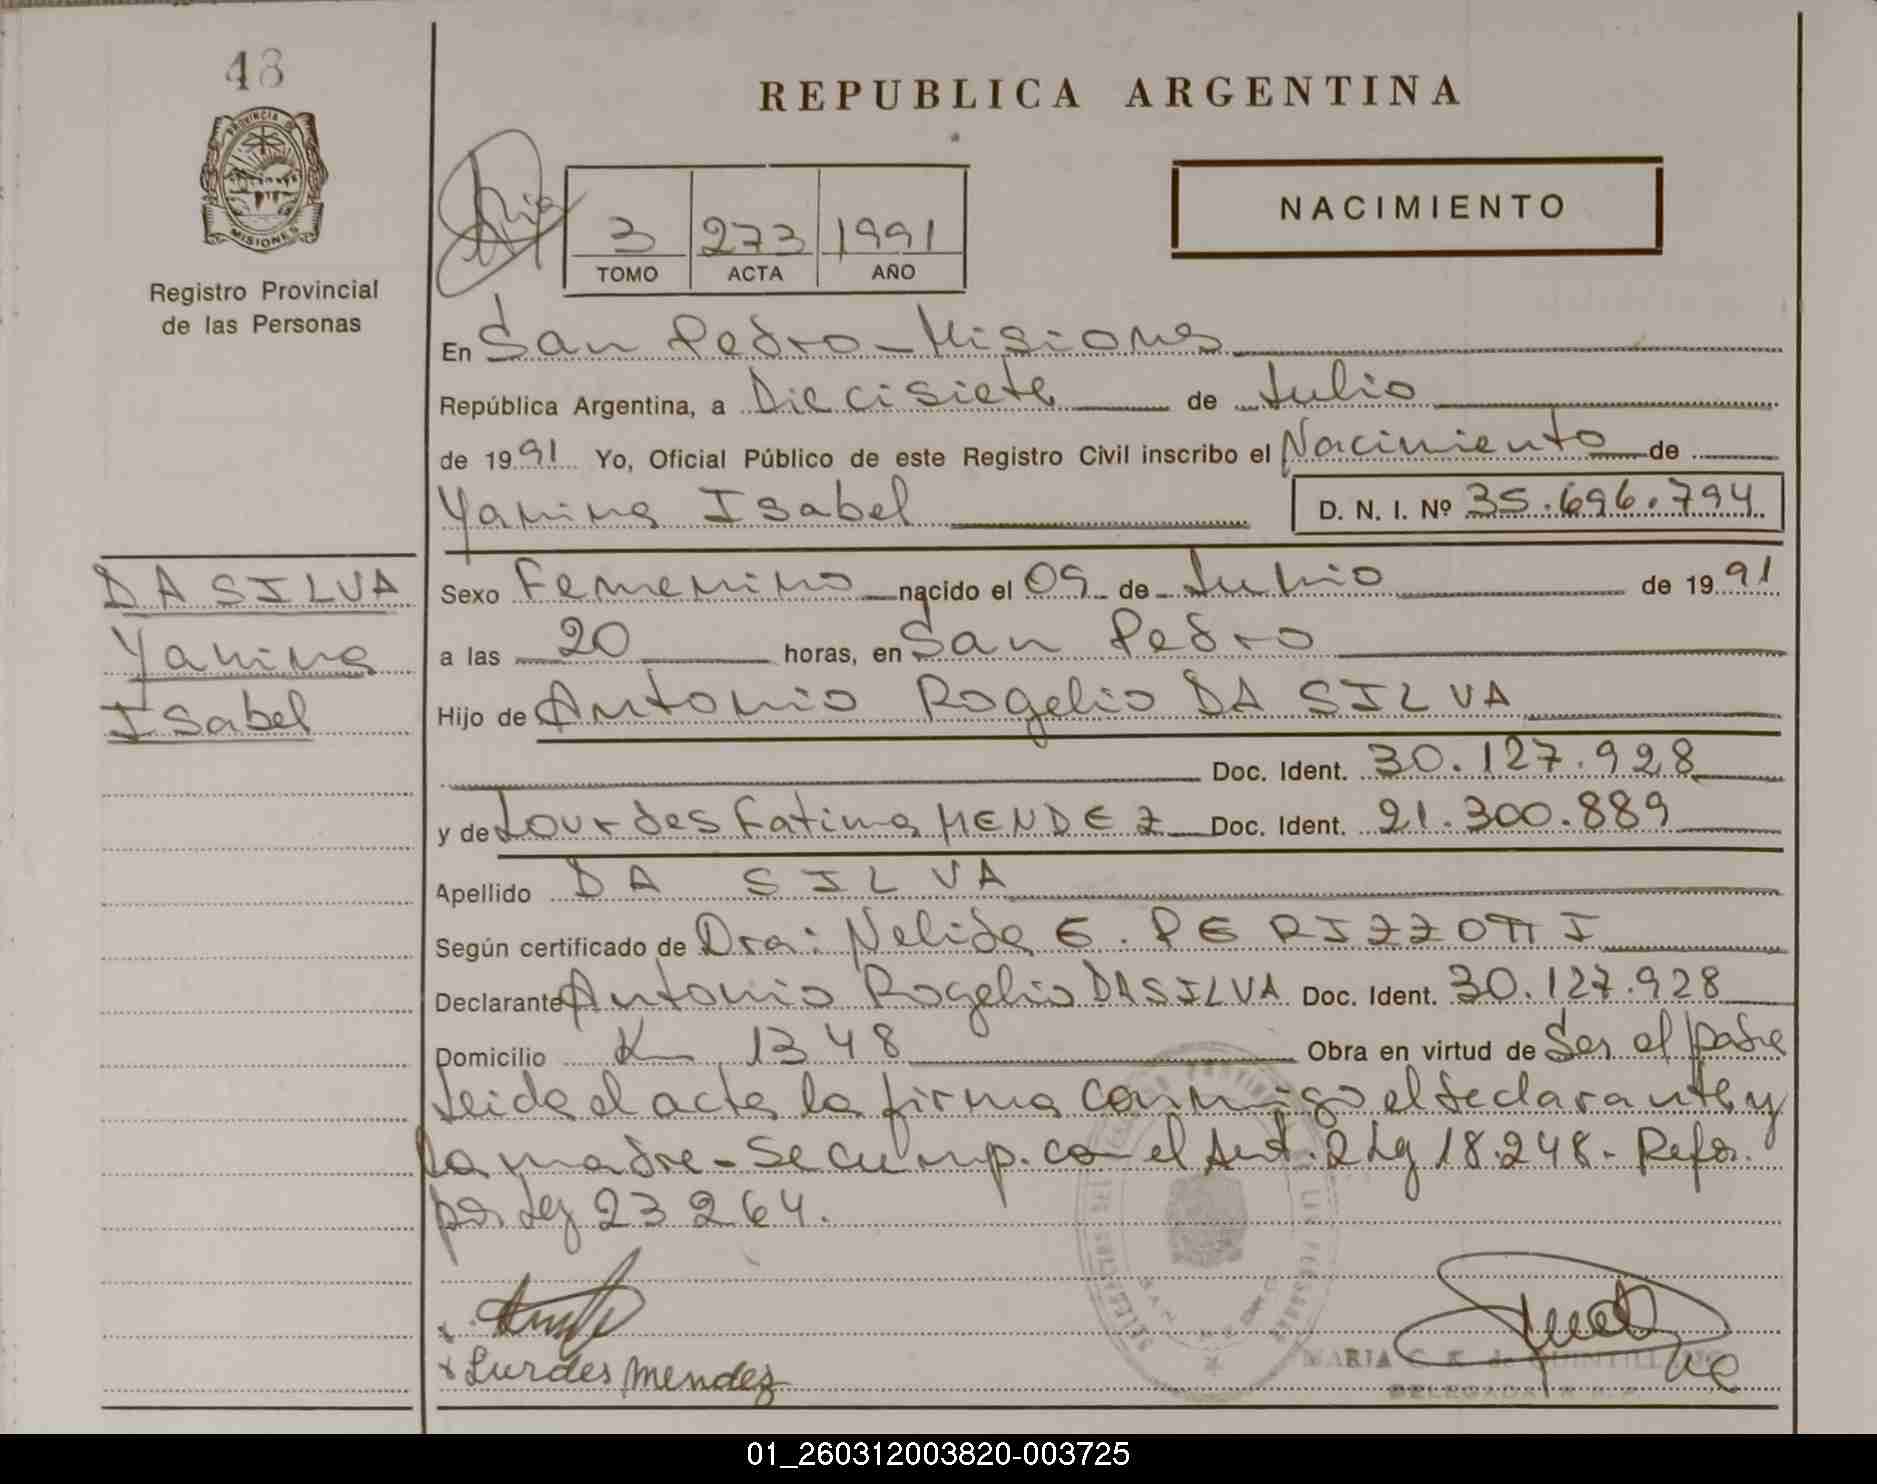 48
REPUBLICA ARGENTINA
PROVINCIA DE
MISIONES
Registro Provincial
de las Personas
3 273 1991
TOMO ACTA AÑO
NACIMIENTO
En San Pedro - Misiones
República Argentina, a Diecisiete de Julio
de 1991 Yo, Oficial Público de este Registro Civil inscribo el Nacimiento de
Yanina Isabel D. N. I. Nº 35.696.794
DA SILVA
Yanina
Isabel
Sexo Femenino nacido el 09 de Junio de 1991
a las 20 horas, en San Pedro
Hijo de Antonio Rogelio DA SILVA
Doc. Ident. 30.127.928
y de Lourdes Fatima MENDEZ Doc. Ident. 21.300.889
Apellido DA SILVA
Según certificado de Dra: Nelida E. PERIZZOTTI
Declarante Antonio Rogelio DA SILVA Doc. Ident. 30.127.928
Domicilio K 1348 Obra en virtud de Ser el padre
Leida el acta la firma conmigo el declarante y
la madre - Se cump. con el Art. 2 Ley 18.248 - Refor.
por Ley 23264.
x Lurdes Mendez
MARIA C. K. de QUINTILLAN
DELEGADA
01_260312003820-003725